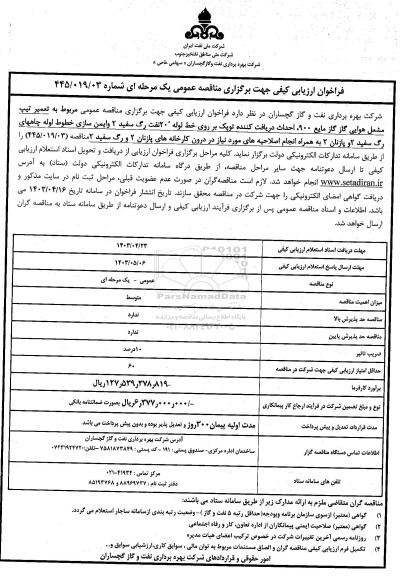 شرکت ملی نفت ایران
شرکت ملی مناطق نفتخیز جنوب
شرکت بهره برداری نفت و گاز گچساران « سهامی خاص »
فراخوان ارزیابی کیفی جهت برگزاری مناقصه عمومی یک مرحله ای شماره ۴۴۵/۰۱۹/۰۳
شرکت بهره برداری نفت و گاز گچساران در نظر دارد فراخوان ارزیابی کیفی جهت برگزاری مناقصه عمومی مربوط به تعمیر تیپ
مشعل هوایی گاز گاز مایع ۹۰۰، احداث دریافت کننده توپک بر روی خط لوله "۲۰نفت رگ سفید ۲ وایمن سازی خطوط لوله چاههای
رگ سفید ۲و پازنان ۲ به همراه انجام اصلاحیه های مورد نیاز در درون کارخانه های پازنان ۲ و رگ سفید ۲مناقصه (۴۴۵/۰۱۹/۰۳) را
از طریق سامانه تدارکات الکترونیکی دولت برگزار نماید. کلیه مراحل برگزاری فراخوان ارزیابی از دریافت و تحویل اسناد استعلام ارزیابی
کیفی تا ارسال دعوتنامه جهت سایر مراحل مناقصه، از طریق درگاه سامانه تدارکات الکترونیکی دولت (ستاد) به آدرس
www.setadiran.ir انجام خواهد شد. لازم است مناقصه‌گران در صورت عدم عضویت قبلی، مراحل ثبت نام در سایت مذکور و
دریافت گواهی امضای الکترونیکی را جهت شرکت در مناقصه محقق سازند. تاریخ انتشار فراخوان در سامانه تاریخ ۱۴۰۳/۰۴/۱۶ می
باشد. اطلاعات و اسناد مناقصه عمومی پس از برگزاری فرآیند ارزیابی کیفی و ارسال دعوتنامه از طریق سامانه ستاد به مناقصه گران
ارسال خواهد شد.
مهلت دریافت اسناد استعلام ارزیابی کیفی ۱۴۰۳/۰۴/۲۳
مهلت ارسال پاسخ استعلام ارزیابی کیفی ۱۴۰۳/۰۵/۰۶
نوع مناقصه عمومی - یک مرحله ای
میزان اهمیت مناقصه متوسط
مناقصه حد پذیرش بالا ندارد
مناقصه حد پذیرش پایین ندارد
ضریب تاثیر ۱۰درصد
حداقل امتیاز ارزیابی کیفی جهت شرکت در مناقصه ۶۰
برآورد کارفرما
نوع و مبلغ تضمین شرکت در فرآیند ارجاع کار پیمانکاری ۶٫۳۷۷٫۰۰۰٫۰۰۰/- ریال بصورت ضمانتنامه بانکی
مدت قرارداد، تعدیل و پیش پرداخت مدت اولیه پیمان ۳۰۰روز و تعدیل پذیر بوده و بدون پیش پرداخت می باشد
اطلاعات تماس دستگاه مناقصه گزار آدرس شرکت بهره برداری نفت و گاز گچساران
ساختمان اداره مرکزی- صندوق پستی : ۱۹۱ - کد پستی : ۷۵۸۱۸۷۳۸۴۹ - تلفن:
تلفن های سامانه ستاد مرکز تماس : ۴۱۹۳۴-۰۲۱
دفتر ثبت نام : ۸۸۹۶۹۷۳۷ و ۸۵۱۹۳۷۶۸
مناقصه گران متقاضی ملزم به ارائه مدارک زیر از طریق سامانه ستاد می باشند:
۱) گواهی (معتبر) ازسوی سازمان برنامه وبودجه(حداقل رتبه ۵ نفت و گاز) - وضعیت رتبه بندی ازسامانه ساجار استعلام می گردد.
۲) گواهی (معتبر) صلاحیت ایمنی پیمانکاران از اداره تعاون، کار و رفاه اجتماعی
۳) روزنامه رسمی آخرین تغییرات شرکت در خصوص ترکیب اعضای هیات مدیره
۴) تکمیل فرم ارزیابی کیفی مناقصه گران و الصاق مستندات مربوط به توان مالی ، سوابق کاری،ارزشیابی سوابق و...
امور حقوقی و قراردادهای شرکت بهره برداری نفت و گاز گچساران